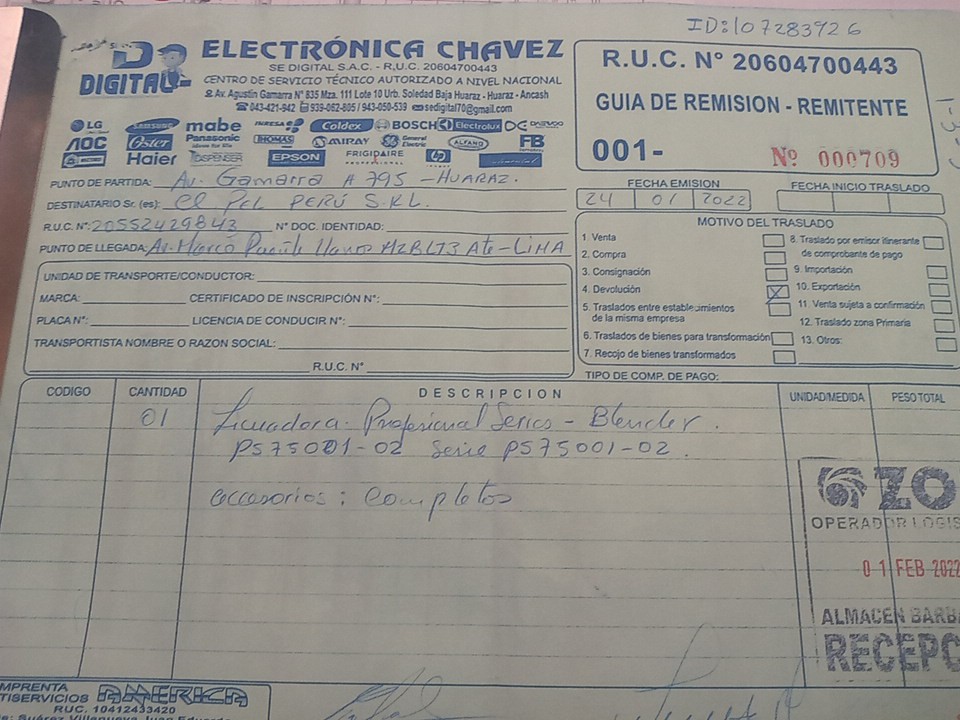 ID:107283926
DIGITAL
ELECTRÓNICA CHAVEZ
SE DIGITAL S.A.C. - R.U.C. 20604700443
CENTRO DE SERVICIO TÉCNICO AUTORIZADO A NIVEL NACIONAL
Av. Agustín Gamarra N° 835 Mza. 111 Lote 10 Urb. Soledad Baja Huaraz - Huaraz - Ancash
043-421-942 939-062-805 / 943-050-539 sedigital70@gmail.com
LG SAMSUNG mabe INRESA Coldex BOSCH Electrolux DAEWOO
AOC Oster Panasonic THOMAS MIRAY General Electric ALFANO FB
Haier EPSON FRIGIDAIRE hp
R.U.C. N° 20604700443
GUIA DE REMISION - REMITENTE
001- Nº 000709
PUNTO DE PARTIDA: Av. Gamarra A 795 - HUARAZ.
DESTINATARIO Sr. (es): el PCL PERÚ S.R.L.
R.U.C. N°: 20552429843 N° DOC. IDENTIDAD:
PUNTO DE LLEGADA: Av. Marcó Puente Llanos MZBLT3 Ate - LIMA
FECHA EMISION
24 01 2022
FECHA INICIO TRASLADO
UNIDAD DE TRANSPORTE/CONDUCTOR:
MARCA: CERTIFICADO DE INSCRIPCIÓN N°:
PLACA N°: LICENCIA DE CONDUCIR N°:
TRANSPORTISTA NOMBRE O RAZON SOCIAL:
R.U.C. N°
MOTIVO DEL TRASLADO
1. Venta
2. Compra
3. Consignación
4. Devolución X
5. Traslados entre establecimientos
de la misma empresa
6. Traslados de bienes para transformación
7. Recojo de bienes transformados
8. Traslado por emisor itinerante
de comprobante de pago
9. Importación
10. Exportación
11. Venta sujeta a confirmación
12. Traslado zona Primaria
13. Otros:
TIPO DE COMP. DE PAGO:
CODIGO CANTIDAD DESCRIPCION UNIDAD/MEDIDA PESO TOTAL
01 Licuadora Profesional Series - Blender.
PS75001-02 Serie PS75001-02.
accesorios: Completos
ZO
OPERADOR LOGIS
01 FEB 2022
ALMACEN BARB
RECEPC
MPRENTA
TISERVICIOS AMERICA
RUC. 10412433420
Suárez Villanueva Juan Eduardo